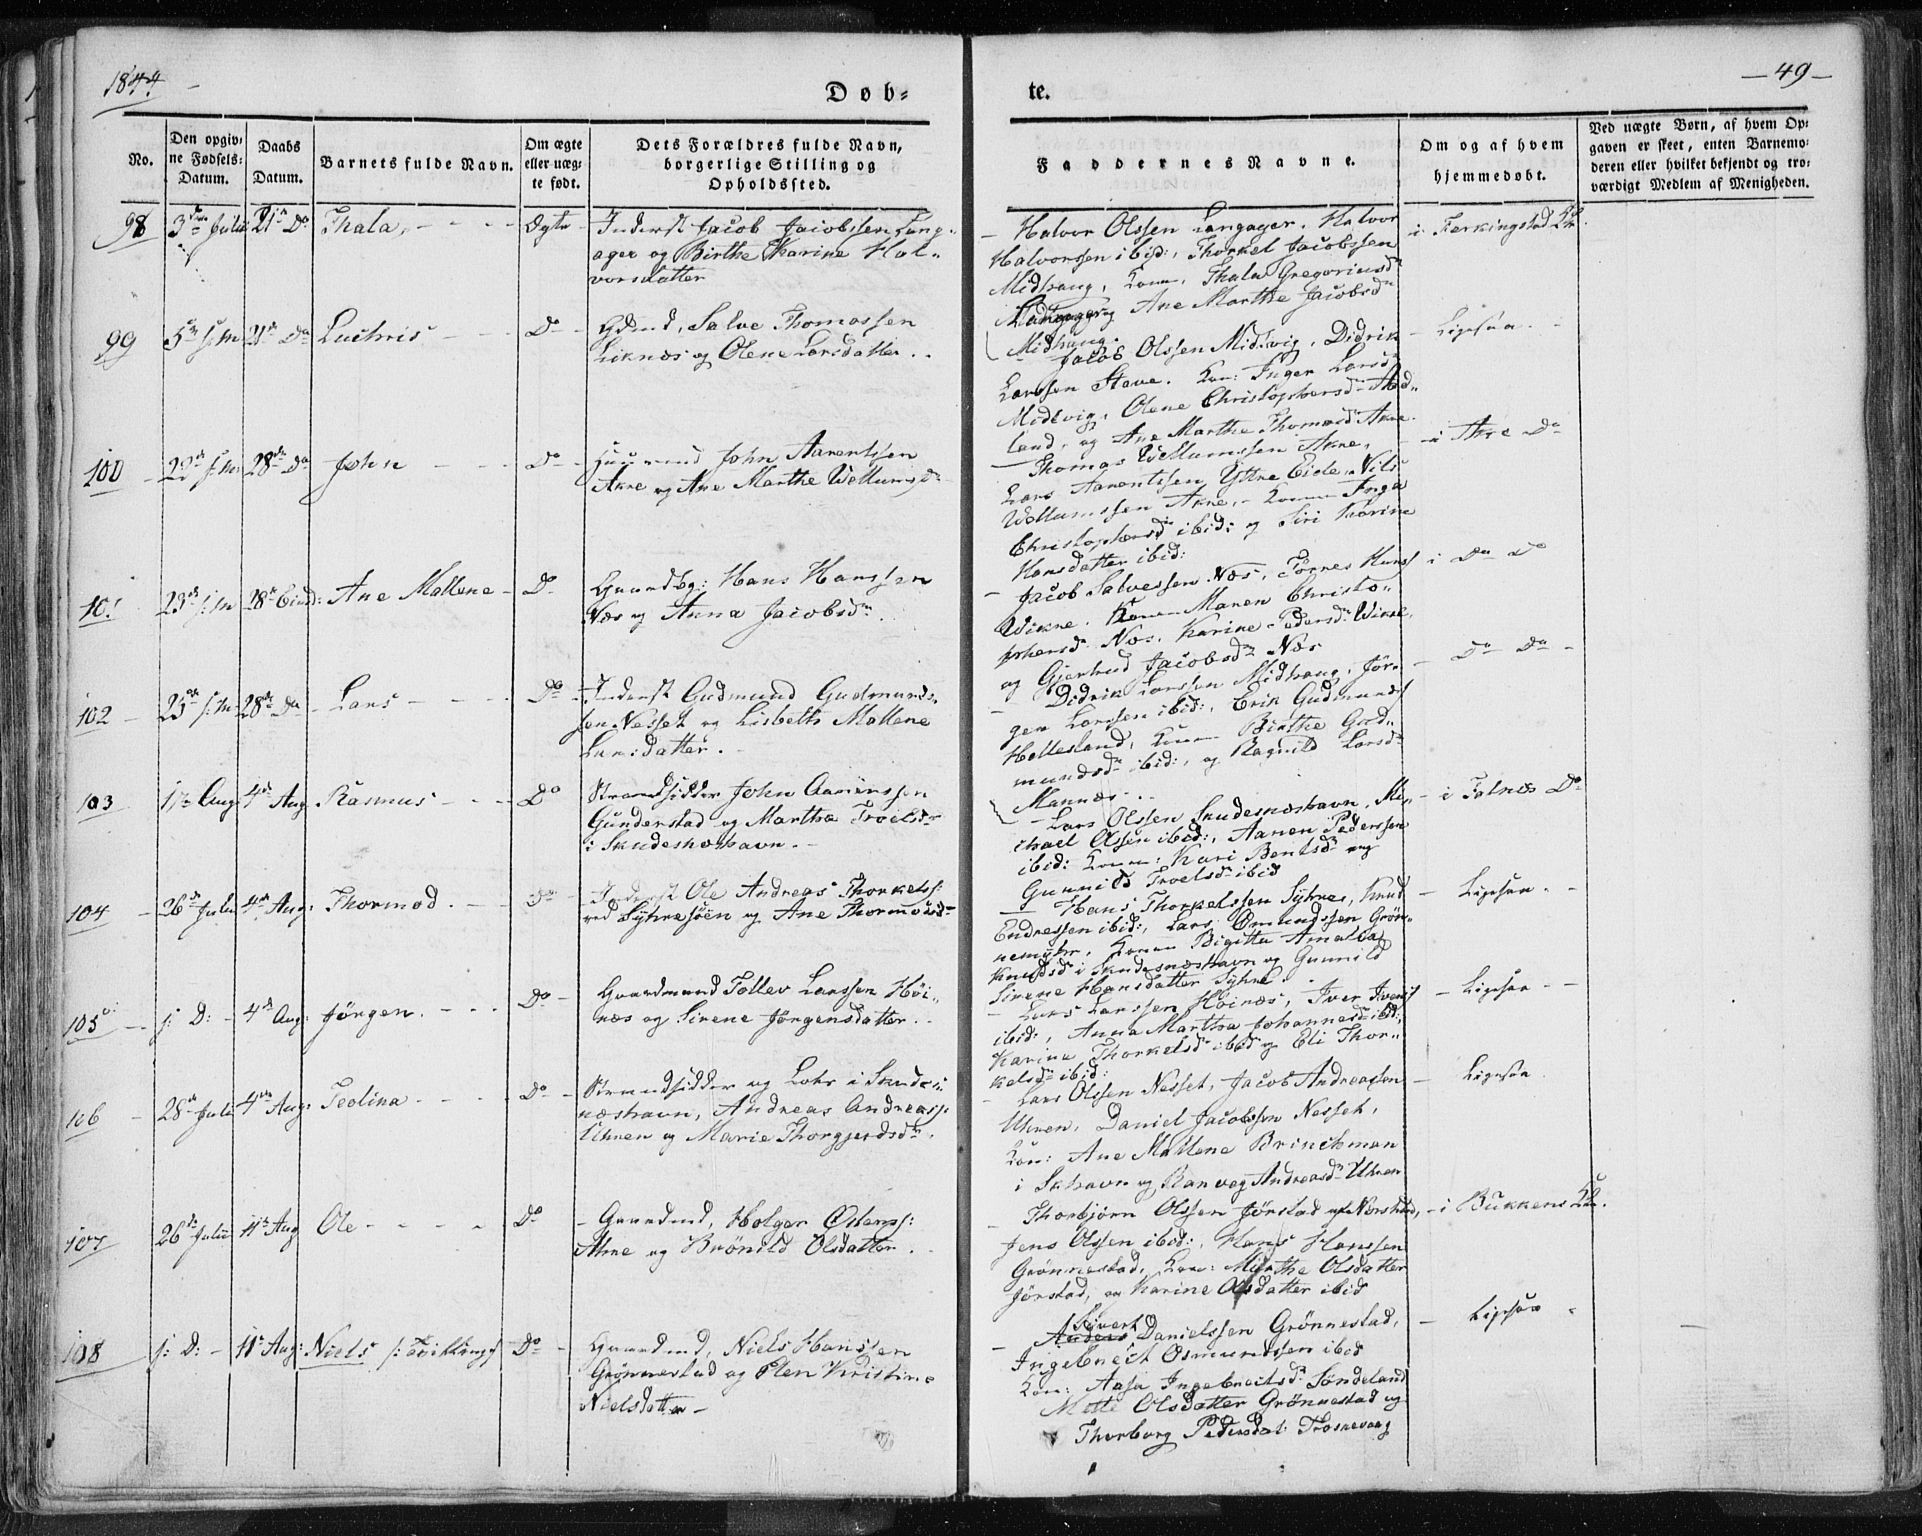 1844
Døb-
te.
—49—
No.
Den opgiv-
ne Fødsels-
Datum.
Daabs
Datum.
Barnets fulde Navn.
Om ægte
eller uæg-
te født.
Dets Forældres fulde Navn,
borgerlige Stilling og
Opholdssted.
Faddernes Navne.
Om og af hvem
hjemmedøbt.
Ved uægte Børn, af hvem Op-
gaven er skeet, enten Barnemo-
deren eller hvilket bekjendt og tro-
værdigt Medlem af Menigheden.
98 3die Julii 21de Do Thala, Ægte Inderst Jacob Jacobssen Lang-
ager og Birthe Karine Hal-
vorsdatter
Halvor Olssen Langager, Halvor i Ferkingstad
Halvorssen ibid:, Thorkel Jacobssen
Midhaug, Konen Thala Gregoriusdr
Langager, Ane Marthe Jacobsdr
Midhaug.
99 5te s: M 21de Do Do Gdmd, Salve Thomassen
Liknæs og Olene Larsdatter.
Jacob Olssen Midtvig, Didrik Ligesaa
Larssen Stave. Kon: Inger Larsdr
Midtvig, Olene Christophersdr
land, og Ane Marthe Thomasdr Akre
100 22de s: M 28de Do John Do Gaardmd John Aarentsen
Akre og Ane Marthe Wellumsdr
Thomas Wellumssen Akre, i Akre Do
Lars Aarentssen Yttre Eide, Nils
Wellumssen Akre, Konen Inga
Christophersdr ibid: og Siri Karine
Hansdatter ibid:
101 23de s: M 28de Ane Mallene Do Gaardbg: Hans Hanssen
Næs og Anna Jacobsdr
Jacob Salvessen Næs, Tørres Hanss i Do Do
Wikre. Konen Maren Christo-
phersdr Næs, Karine Pedersdr Wikre
og Gjertrud Jacobsdr Næs
102 25de s: M 28de Do Lars Do Inderst Gudmund Gudmunds-
sen Nesset og Lisbeth Mallene
Larsdatter.
Didrik Larssen Midhaug, Jør- Do Do
gen Larssen ibid:, Erik Gudmunds
Hellesland, Konen Birthe Gud-
mundsdr ibid:, og Ragnild Larsdr
Mannæs
103 1ste Aug 4de Aug Rasmus Do Strandsidder John Aanenssen
Gunderstad og Marthe Troelsdr
i Skudesnæshavn.
Lars Olssen Skudesnæshavn, Mi- i Falnæs Do
chael Olssen ibid:, Aanen Pederssen
ibid: Konen: Kari Bentsdr og
Gunnild Troelsdr ibid
104 26de Julii 4de Aug: Thormod. Do Inderst Ole Andreas Thorkelss:
ved Syhresøen og Ane Thormodsdr
Hans Thorkelssen Syhre, Knud Ligesaa
Endressen ibid:, Lars Omundssen Grøn-
nemyhr, Konen Bigitta Amalia
Knudsdr i Skudesnæshavn og Gunnild
Sirene Hansdatter Syhre
105 s: D: 4de Aug: Jørgen. Do Gaardmand Tollev Larssen Høi-
næs og Sirene Jørgensdatter.
Lars Larssen Høinæs, Iver Iverss Ligesaa
ibid:, Anna Marthe Johannesdr ibid:,
Karine Thorkelsdr ibid og Eli Thor-
kelsdr ibid:
106 28de Julii 4de Aug: Teolina Do Strandsidder og Lods i Skudes-
næshavn, Andreas Andreass:
Uhren og Marie Thorgjerdsdr.
Lars Olssen Nesset, Jacob Andreassen Ligesaa.
Uhren, Daniel Jacobssen Nesset,
Kon: Ane Mallene Brinchman
i Skhavn og Ranveg Andreasdr Uhren
107 26de Julii 11te Aug Ole Do Gaardmd, Holger Ostenss:
og Brønild Olsdatter.
Thorbjørn Olssen Jørstad i Bukkens
Jens Olssen ibid:, Hans Hanssen
Grønnestad, Kon: Marthe Olsdatter
Jørstad, og Karine Olsdatter ibid
108 s: D: 11te Aug: Niels /: Tvilling Do Gaardmd, Niels Hanssen
Grønnestad og Elen Kristine
Nielsdatter
Sivert
Anders Danielssen Grønnestad, Ligesaa
Ingebrect Osmundssen ibid
Kon: Aasa Ingebrectsdr Søndeland
Mette Olsdatter Grønnestad og
Thorborg Pedersdat: Trosnevaag